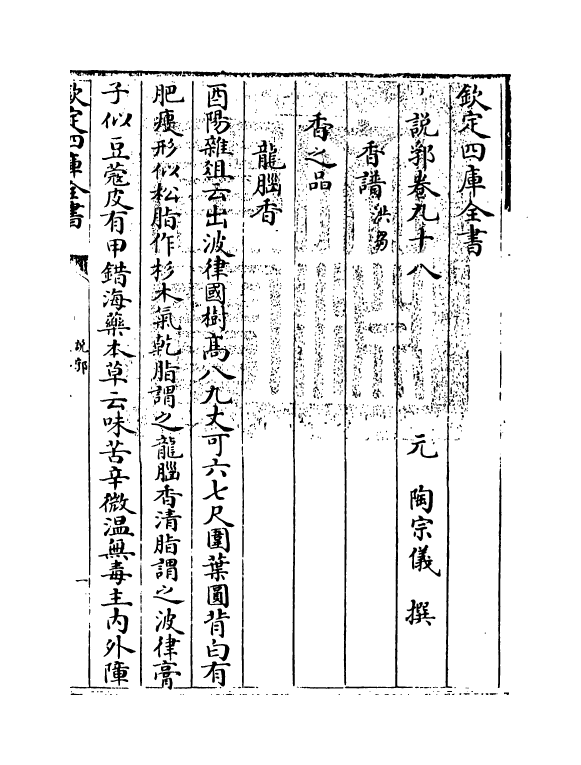 欽定四庫全書
說郛卷九十八
元 陶宗儀 撰
香譜 洪芻
香之品
龍腦香
酉陽雜俎云出波律國樹高八九丈可六七尺圍葉圓背白有
肥瘦形似松脂作杉木氣乾脂謂之龍腦香清脂謂之波律膏
子似豆蔻皮有甲錯海藥本草云味苦辛微温無毒主内外障
欽定四庫全書
說郛
一